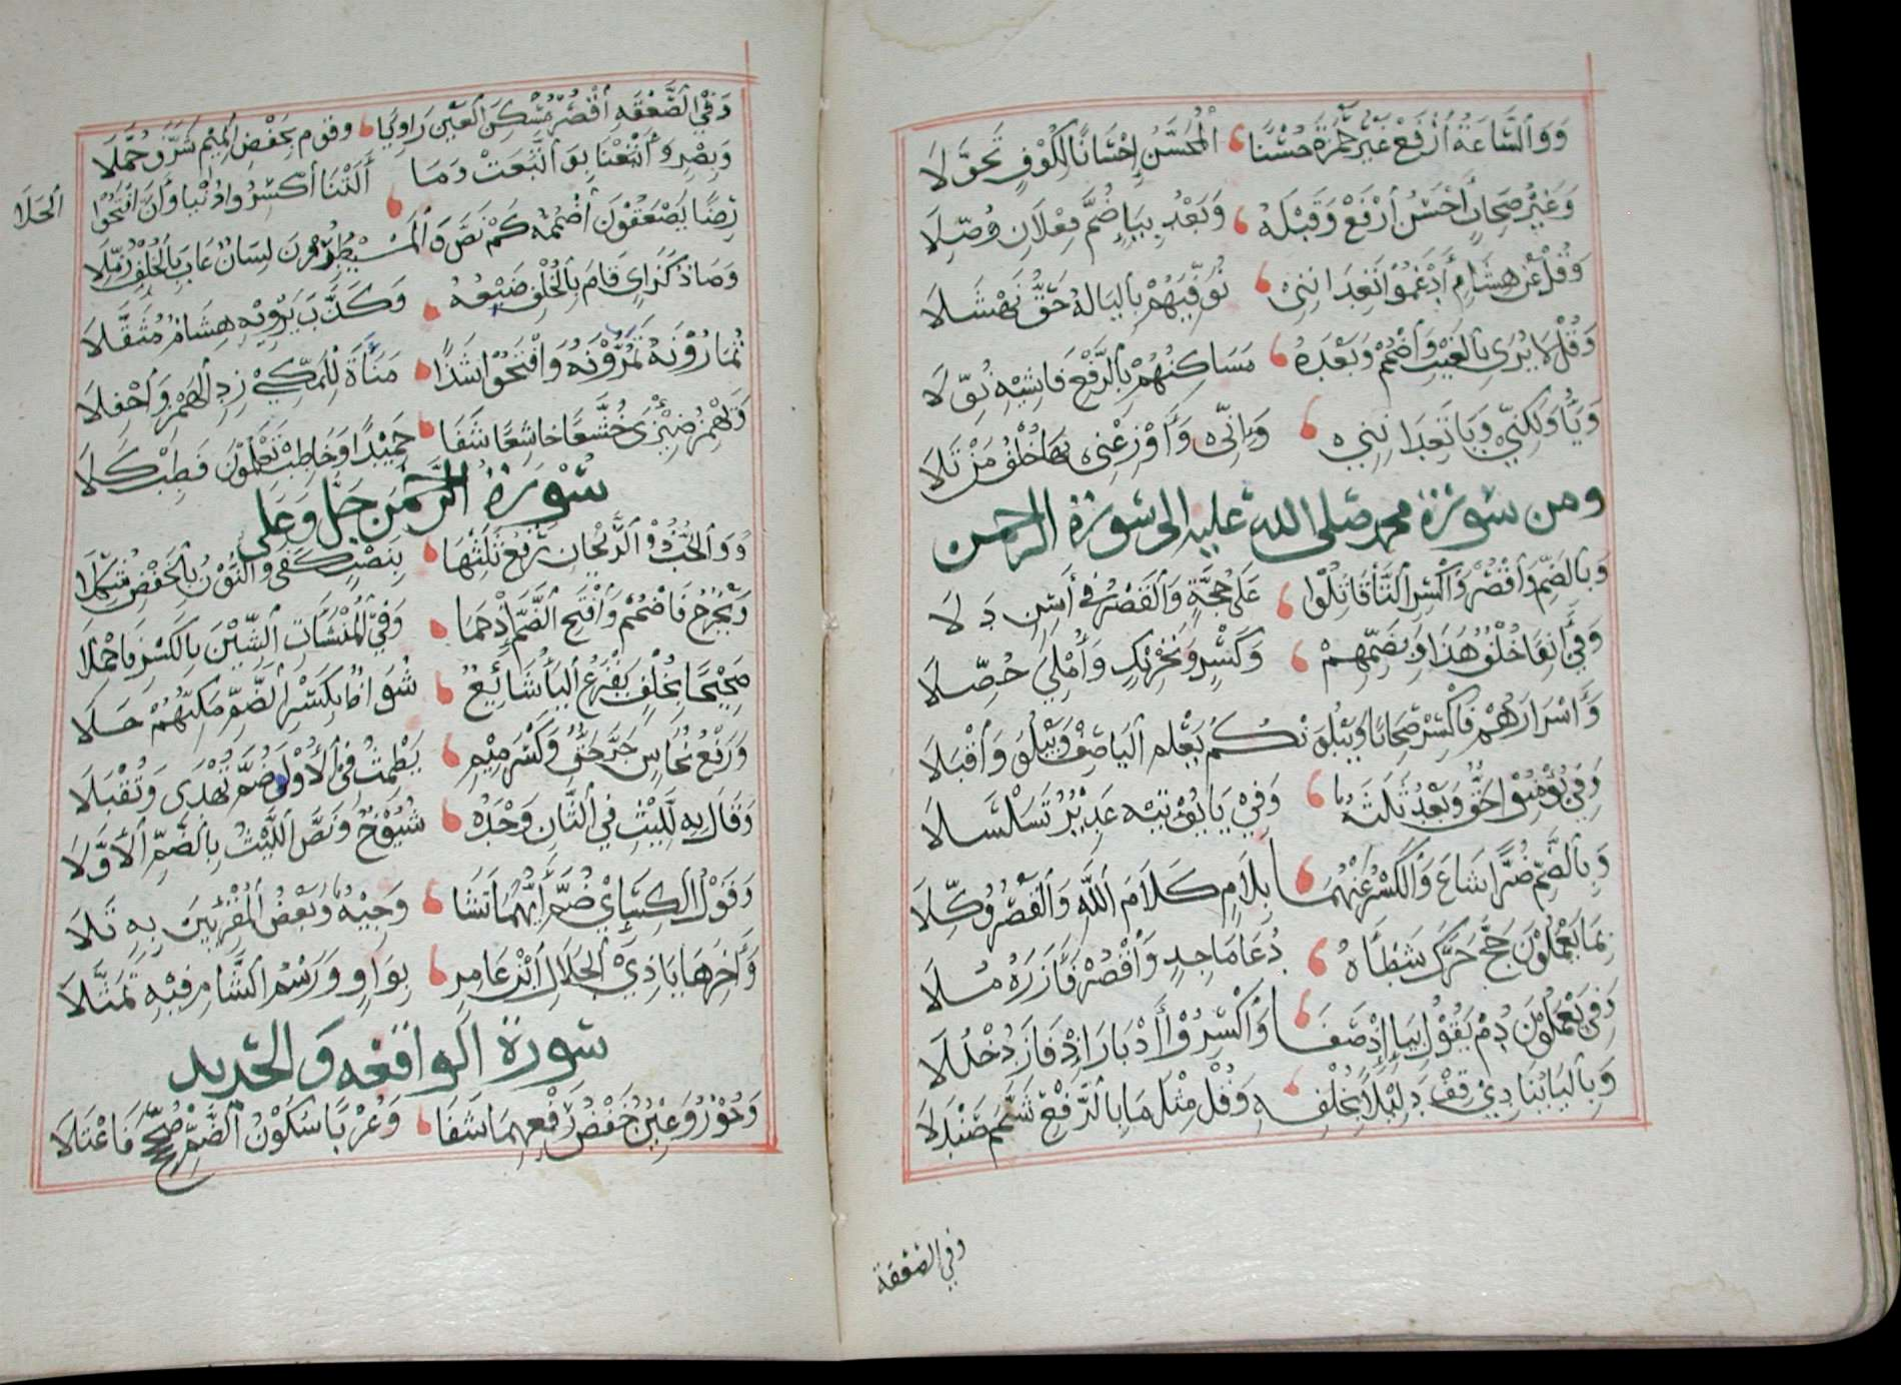 وَوَالسَّاعَةَ ارْفَعْ غَيْرَ حَمْزَةَ حُسْنًا الْمُحَسَّنُ إِحْسَانًا لِكُوْفٍ تَحَوَّلَا
وَغَيْرُ صِحَابٍ أَحْسَنُ ارْفَعْ وَقَبْلَهُ وَبَعْدُ بِيَاءٍ ضُمَّ فِعْلَانِ وُصِّلَا
وَقُلْ عَنْ هِشَامٍ أَدْغَمُوا تَعِدَانِنِي نُوَفِّيَهُمْ بِالْيَا لَهُ حَقُّ نَهْشَلَا
وَقُلْ لَا يُرَى بِالْغَيْبِ وَاضْمُمْ وَبَعْدَهُ مَسَاكِنُهُمْ بِالرَّفْعِ فَاشِيْهِ نُوِّلَا
وَيَاءُ وَلَكِنِّي وَيَا تَعِدَانِنِي وَإِنِّي وَأَوْزِعْنِي بِهَا خُلْفُ مَنْ تَلَا
ومن سورة محمد صلى الله عليه الى سورة الرحمن
وَبِالضَّمِّ وَاقْصُرْ وَاكْسِرِ التَّا قَاتَلُوا عَلَى حُجَّةٍ وَالْقَصْرُ فِي أَسِنٍ دَلَا
وَفِي أَنِفًا خُلْفٌ هَدَى وَبِضَمِّهِمْ وَكَسْرٍ وَتَحْرِيْكٍ وَأُمْلِيَ حُصِّلَا
وَأَسْرَارَهُمْ فَاكْسِرْ صِحَابًا وَيَبْلُوَنْكُمْ يَعْلَمَ الْيَا صِفْ وَيَبْلُوَ وَاقْبَلَا
وَفِي يُؤْمِنُوا حَقٌّ وَبَعْدُ ثَلَثَةٌ وَفِي يَا يُؤْتِيْهِ غَدِيْرٌ تَسَلْسَلَا
وَبِالضَّمِّ ضُرًّا شَاعَ وَالْكَسْرُ عَنْهُمَا بِلَامِ كَلَامَ اللَّهِ وَالْقَصْرُ وُكِّلَا
بِمَا يَعْمَلُوْنَ حَجَّ حَرَّكَ شَطْأَهُ دُعَا مَاجِدٍ وَاقْصُرْ فَأَزَرَهُ مُلَا
وَفِي يَعْمَلُوْنَ دُمْ يَقُوْلُ بِيَاءٍ إِذْ صَفَا وَاكْسِرُوْا أَدْبَارَ إِذْ فَازَ دُخْلُلَا
وَبِالْيَا يُنَادِي قِفْ دَلِيْلًا بِخُلْفِهِ وَقُلْ مِثْلَ مَا بِالرَّفْعِ شَمَّمَ صَنْدَلَا
وفي الصعقة
وَفِي الصَّعْقَةِ اقْصُرْ مُسْكِنَ الْعَيْنِ رَاوِيًا وَقَوْمَ بِخَفْضِ الْمِيْمِ شَرَّفَ حُمَّلَا
وَبَصْرٍ وَأَتْبَعْنَا بِوَاتَّبَعَتْ وَمَا أَلَتْنَا اكْسِرُوا دُنْيَا وَأَنَّ افْتَحُوا
الجلا
رِضًا يَصْعَقُوْنَ اضْمُمْهُ كَمْ نَصَّ وَالْمُسَيْطِرُوْنَ لِسَانٌ عَابَ بِالْخُلْفِ زُمِّلَا
وَصَادٌ كَزَايٍ قَامَ بِالْخُلْفِ ضَبْعُهُ وَكَذَّبَ يَرْوِيْهِ هِشَامٌ مُثَقَّلَا
تُمَارُوْنَهُ تَمْرُوْنَهُ وَافْتَحُوا شَذًا مَنَاءَةَ لِلْمَكِّي زِدِ الْهَمْزَ وَاحْفِلَا
وَيَهْمِزُ ضِيْزَى خُشَّعًا خَاشِعًا شَفَا حَمِيْدًا وَخَاطِبْ تَعْلَمُوْنَ فَطِبْ كَلَا
سورة الرحمن جل وعلى
وَوَالْحَبُّ ذُو الرَّيْحَانِ رَفْعُ ثَلَثِهَا بِنَصْبٍ كَفَى وَالنُّوْنُ بِالْخَفْضِ شُكِّلَا
وَيَخْرُجُ فَاضْمُمْ وَافْتَحِ الضَّمَّ إِذْ حَمَا وَفِي الْمُنْشَآتُ الشِّيْنَ بِالْكَسْرِ فَاحْمِلَا
صَحِيْحًا بِخُلْفٍ يَفْرُغُ الْيَاءُ شَائِعٌ شُوَاظٌ بِكَسْرِ الضَّمِّ مَكِّيُّهُمْ جَلَا
وَرَفْعُ نُحَاسٍ جَرَّ حَقٌّ وَكَسْرَ مِيْمِ يَطْمِثُ فِي الْأُوْلَى ضُمَّ تُهْدَى وَتُقْبَلَا
وَقَالَ بِهِ لِلَّيْثِ فِي الثَّانِ وَحْدَهُ شُيُوْخٌ وَنَصُّ اللَّيْثِ بِالضَّمِّ الْأَوَّلَا
وَقَوْلُ الْكِسَائِي ضُمَّ أَيَّهُمَا تَشَا وَجِيْهٌ وَبَعْضُ الْمُقْرِئِيْنَ بِهِ تَلَا
وَأَخِرُهَا يَا ذِي الْجَلَالِ ابْنُ عَامِرٍ بِوَاوٍ وَرَسْمُ الشَّامِ فِيْهِ تَمَثَّلَا
سورة الواقعه والحديد
وَحُوْرٌ وَعِيْنٌ خَفْضُ رَفْعِهِمَا شَفَا وَعُرْبًا سُكُوْنُ الضَّمِّ صُحِّحَ فَاعْتَلَا